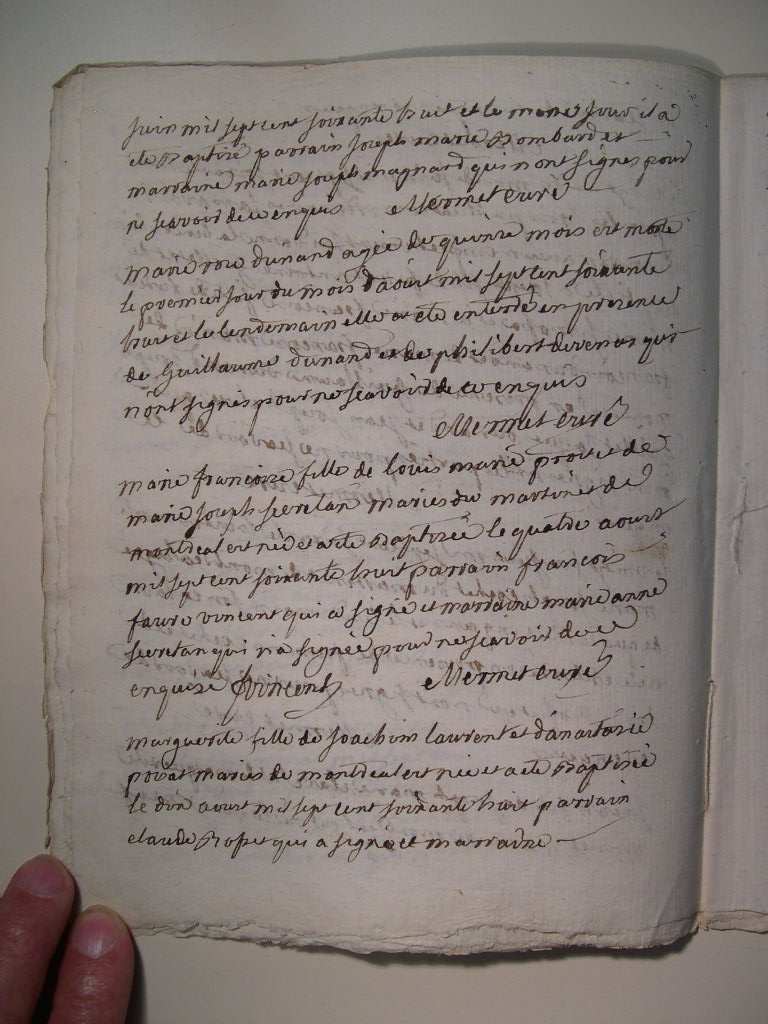 juin mil sept cent soixante huit et le meme jour il a
ete Baptizé parrain joseph marie Bombard et
marraine marie joseph magnard qui n ont signés pour
ne scavoir de ce enquis Mermet curé
marie rose dunand agée de quinze mois est morte
le premier jour du mois d'aoust mil sept cent soixante
huit et le lendemain elle a eté enterré en presence
de Guillaume dunand et de philibert devenas qui
n'ont signés pour ne scavoir de ce enquis
Mermet curé
marie francoise fille de louis marie prost et de
marie joseph secretan mariés du martinet de
montdeal est née et a eté Baptizée le quatde aoust
mil sept cent soixante huit parrain francois
favre vincent qui a signé et marraine marie anne
secretan qui n'a signée pour ne scavoir de ce
enquise fvincent Mermet curé
marguerite fille de joachim laurent et d'anastasie
poirat mariés de montdeal est née et a eté Baptizée
le dix aoust mil sept cent soixante huit parrain
claude Rosset qui a signé et marraine